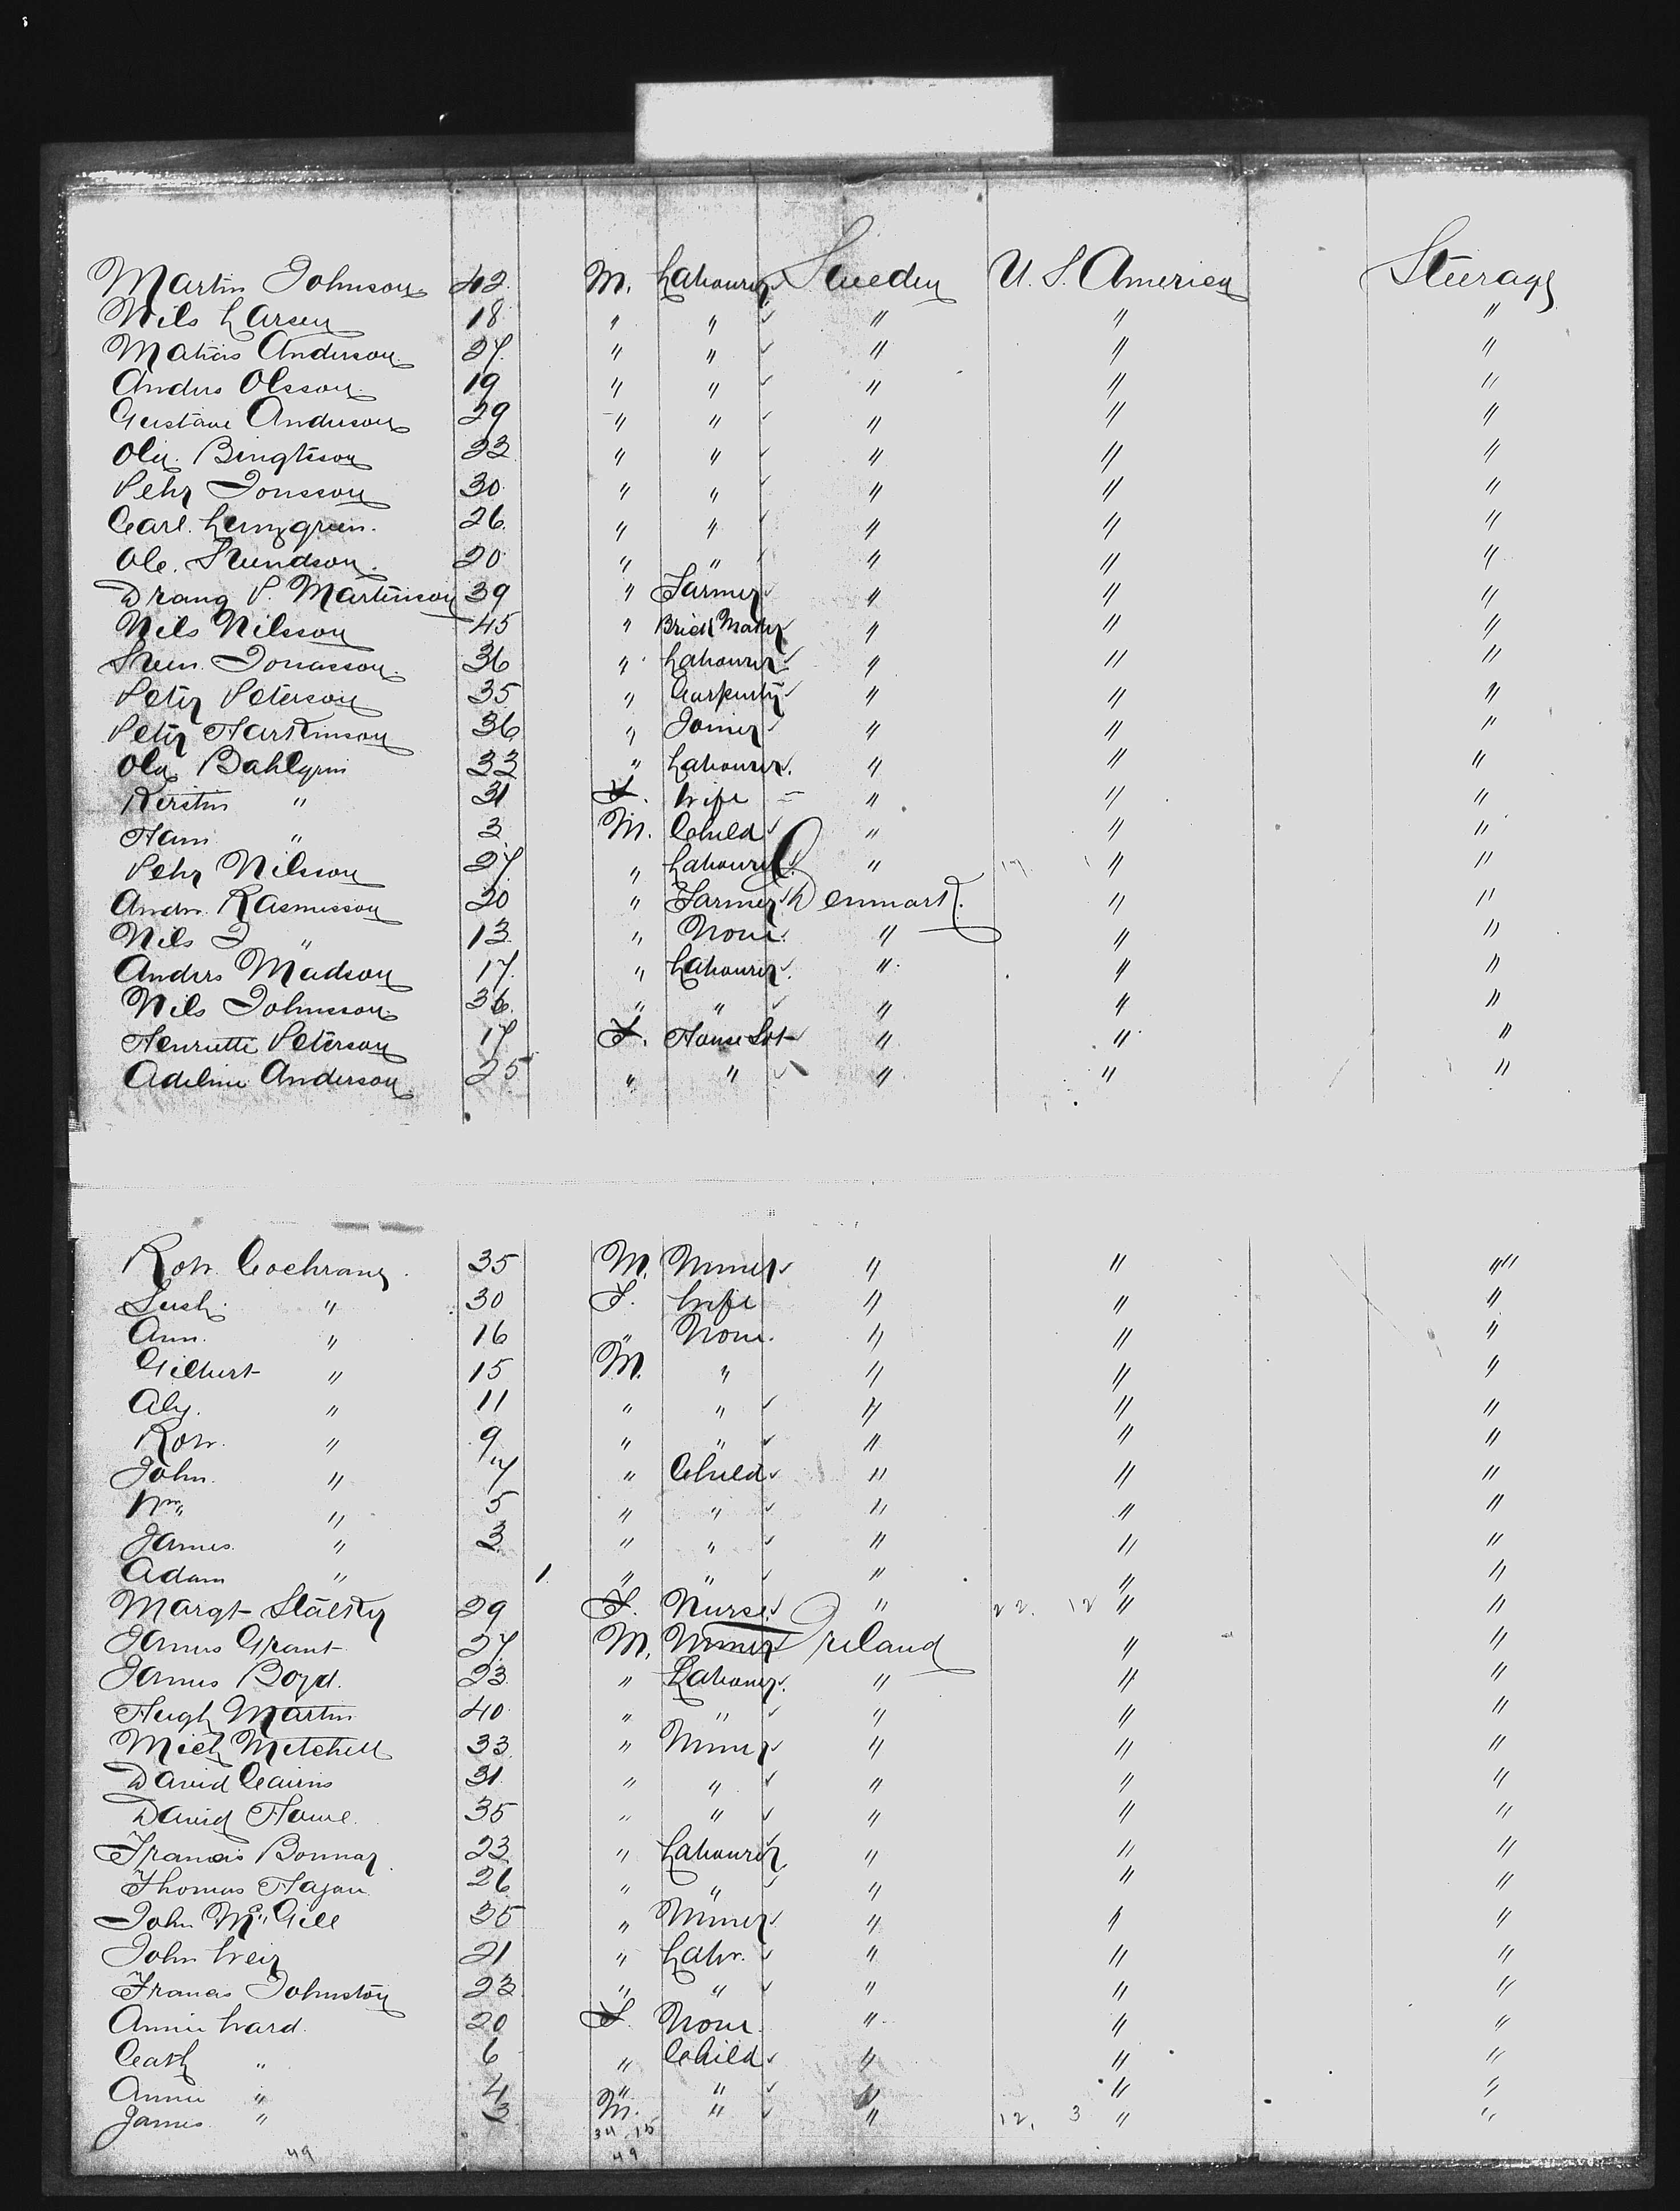 Martin Johnson 42 M. Labourer Sweden U. S. America Steerage
Nils Larsen 18 " " " " "
Matias Anderson 27 " " " " "
Anders Olsson 19 " " " " "
Gustave Anderson 29 " " " " "
Ola Bingtsson 22 " " " " "
Pehr Jonsson 30 " " " " "
Carl 26 " " " " "
Ole. Svendson. 20 " " " " "
P. Martinson 39 " Farmer " " "
Nils Nilsson 45 " Brick Maker " " "
Sven. Jonasson. 36 " Labourer " " "
Peter Peterson 35 " Carpenter " " "
Peter Harkinson 36 " Joiner " " "
Ola Dahlgren 33 " Labourer. " " "
Kerstin " 31 F. Wife " " "
Hans " 3 M. Child " " "
Pehr Nilsson 27 " Labourer " " "
Andr. Rasmusson 20 " Farmer Denmark. " "
Nils J " 13 " None. " " "
Anders Madson 17 " Labourer. " " "
Nils Johnsson 36 " " " " "
Henriette Peterson 17 F. House Svt " " "
Adeline Anderson 25 " " " " "
Robt. Cochrane. 35 M. Miner " " "
" 30 F. Wife " " "
Ann. " 16 " None. " " "
Gilbert " 15 M. " " " "
Alex. " 11 " " " " "
Robt. " 9 " " " " "
John. " 7 " Child " " "
Wm. " 5 " " " " "
James. " 3 " " " " "
Adam " 1 " " " " "
Margt 29 F. Nurse " 22. 12 " "
James Grant 27 M. Miner Ireland " "
James Boyd. 23 " Labourer. " " "
Hugh Martin 40 " " " " "
Mich Mitchell 33 " Miner " " "
David Cairns 31 " " " " "
David Howe. 35 " " " " "
Francis Bonnar 23 " Labourer " " "
Thomas Hagan 26 " " " " "
John McGill 35 " Miner " " "
John Weir 21 " Labr. " " "
Francis Johnston 23 " " " " "
Annie Ward. 20 F. None. " " "
Cath " 6 " Child " " "
Annie " 4 " " " " "
James " 3 M. " " 12. 3 " "
34 15
49 49